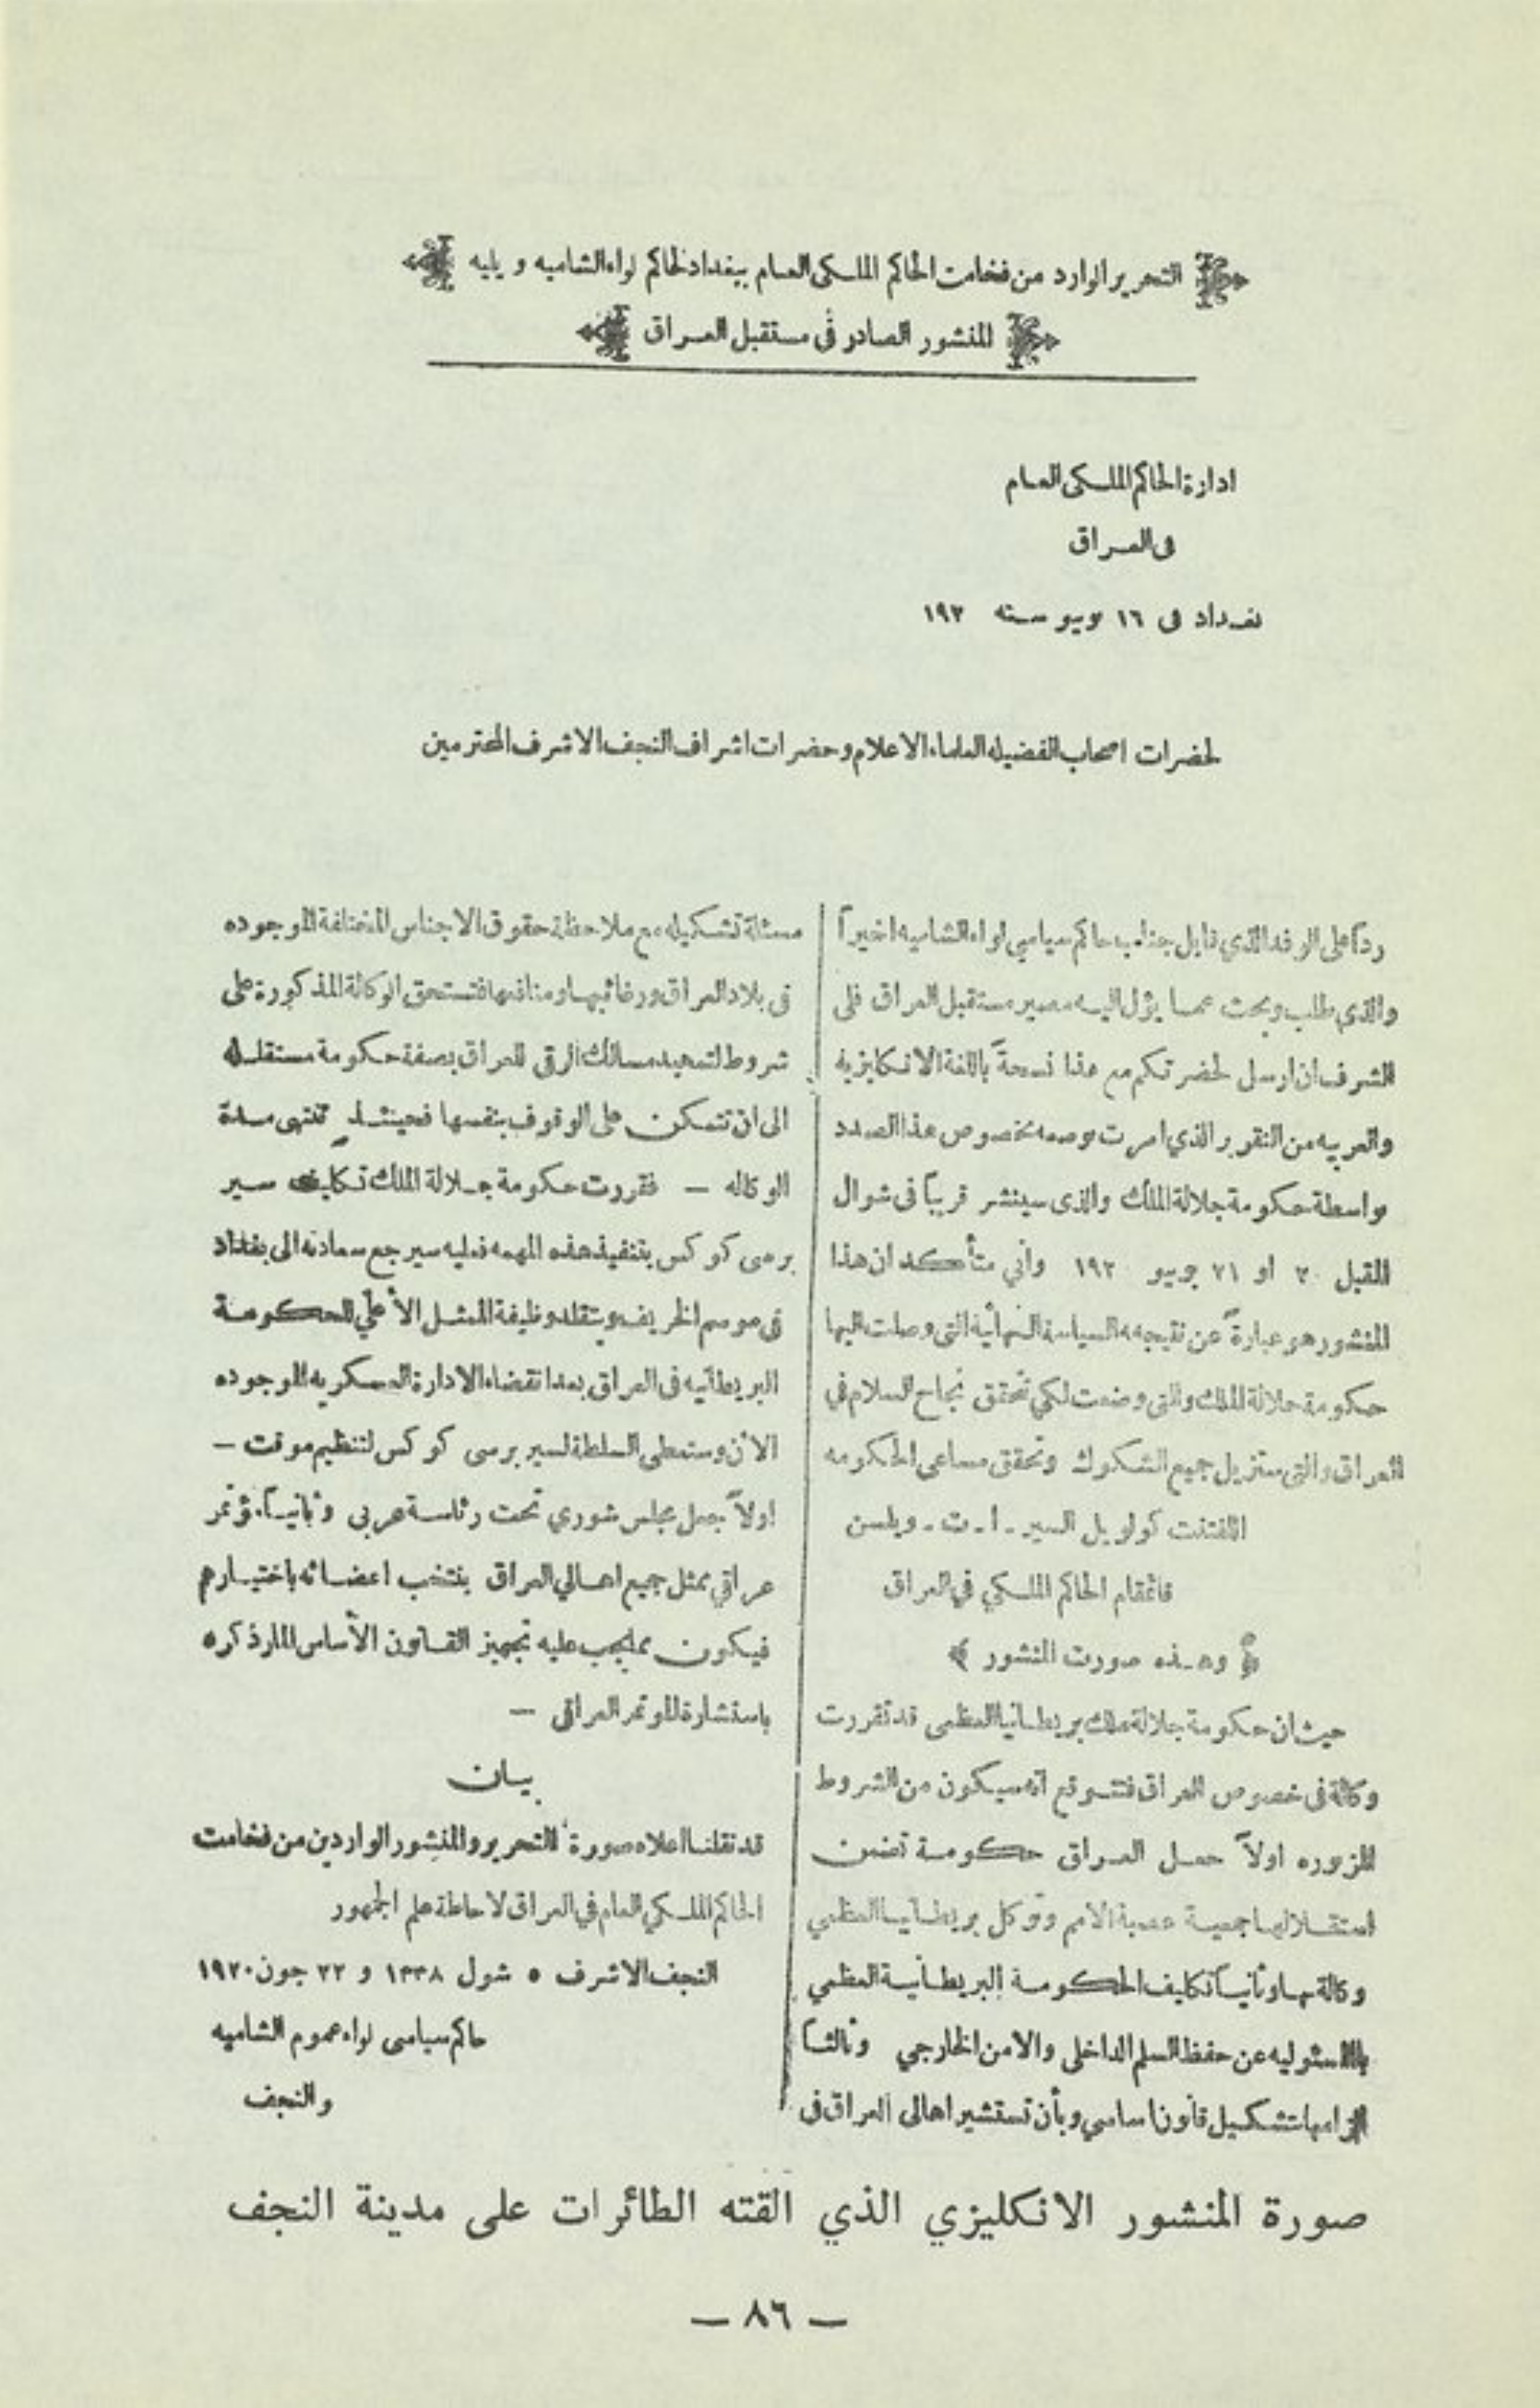 التحرير الوارد من فخامت الحاكم الملكي العام ببغداد لحاكم لواء الشاميه و يليه
المنشور الصادر في مستقبل العراق
ادارة الحاكم الملكي العام
في العراق
بغداد في ١٦ يونيو سنه ١٩٢٠
لحضرات اصحاب الفضيله العلماء الاعلام وحضرات اشراف النجف الاشرف المحترمين
رداً على الوفد الذي قابل جناب حاكم سياسي لواء الشاميه اخيراً
والذي طلب وبحث عما يؤل اليه مصير مستقبل العراق فلى
الشرف ان ارسل لحضرتكم مع هذا نسحةً باللغة الانكليزيه
والعربيه من التقرير الذي امرت بوضعه بخصوص هذا الصدد
بواسطة حكومة جلالة الملك والذى سينشر قريباً فى شوال
المقبل ٢٠ او ٢١ جونيو ١٩٢٠ واني متأكد ان هذا
المنشور هو عبارةً عن نتيجة السياسة النهائية التى وصلت اليها
حكومة جلالة الملك والتى وضعت لكي تحقق نجاح السلام في
العراق والتى ستزيل جميع الشكوك وتحقق مساعى الحكومه
اللفتنت كولونيل السير ـ ا ـ ت ـ ويلسن
قائمقام الحاكم الملكي في العراق
وهذه صورت المنشور
حيث ان حكومة جلالة ملك بريطانيا العظمى قد تقررت
وكالة فى خصوص العراق فتتوقع انه سيكون من الشروط
المزبوره اولاً جعل العراق حكومة تضمن
استقلالها جمعية عصبة الامم وتوكل بريطانيا العظمي
وكالة بها وثانياً تكليف الحكومة البريطانية العظمي
بالمسئوليه عن حفظ السلم الداخلى والامن الخارجي وثالثاً
الزامها بتشكيل قانون اساسي وبأن تستشير اهالى العراق فى
مسئلة تشكيله مع ملاحظة حقوق الاجناس المختلفة الموجوده
فى بلاد العراق ورغائبها ومنافعها فتستحق الوكالة المذكورة على
شروط لتمهيد مسالك الرقى للعراق بصفة حكومة مستقله
الى ان تتمكن على الوقوف بنفسها فحينئذٍ تنتهى مدة
الوكاله – فقررت حكومة جلالة الملك تكليف سير
برسى كوكس بتنفيذ هذه المهمه فعليه سيرجع سعادته الى بغداد
فى موسم الخريف ويتقلد وظيفة الممثل الأعلي للحكومة
البريطانيه فى العراق بعد انقضاء الادارة العسكريه الموجوده
الان وستعطى السلطة لسير برسى كوكس لتنظيم موقت –
اولاً جعل مجلس شوري تحت رئاسة عربى وثانياً مؤتمر
عراقي يمثل جميع اهالي العراق ينتخب اعضائه باختيارهم
فيكون مما يجب عليه تجهيز القانون الأساس المار ذكره
باستشارة المؤتمر العراقى –
بيان
قد نقلنا اعلاه صورة التحرير والمنشور الواردين من فخامت
الحاكم الملكي العام في العراق لاحاطة علم الجمهور
النجف الاشرف ٥ شول ١٣٣٨ و ٢٢ جون ١٩٢٠
حاكم سياسى لواء عموم الشاميه
والنجف
صورة المنشور الانكليزي الذي القته الطائرات على مدينة النجف
— ٨٦ —